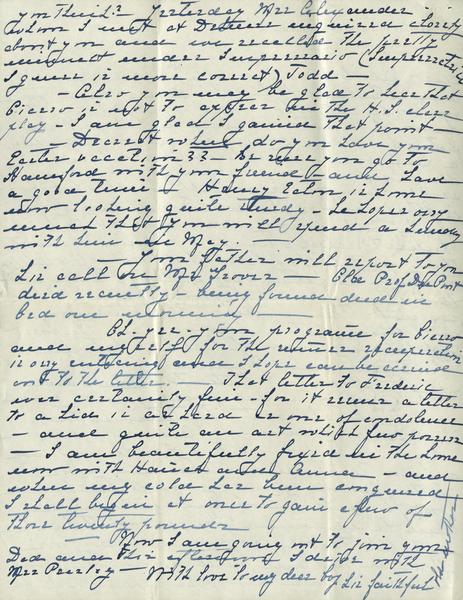 Yesterday Mrs Alexander
whom I met at Denver inquired closely
about you and we recalled the pretty
minuet under Impressario (Impressaria
I guess is more correct) Todd —
— Also you may be glad to hear that
Pierro is not to appear in the H.S. class
play — I am glad I gained that point —
— Dearest when do you have your
Easter vacation?? — Be sure you go to
Hanford with your friend and have
a good time. Harry Edm is home
now looking quite — he hopes very
much that you will spend a Sunday
with him in May. —
— Your father will report to you
his call on Mrs Grover — Old Prof
died recently — being found dead in
bed one morning —
Oh yes — your programme for Pierro
and myself for the summer
is very enticing and I hope can be carried
out to the letter. — That letter to Frederic
was certainly fine — for it seems a letter
to a kid is as hard as one of condolence
— and quite an art which few possess
— I am beautifully fixed in the home
now with and Anna — and
when my cold has been conquered
I shall begin at once to gain a few of
those twenty pounds
Now I am going out to join your
Dad and this afternoon I with
Mrs Presley — With love to my dear boy his faithful
Mother